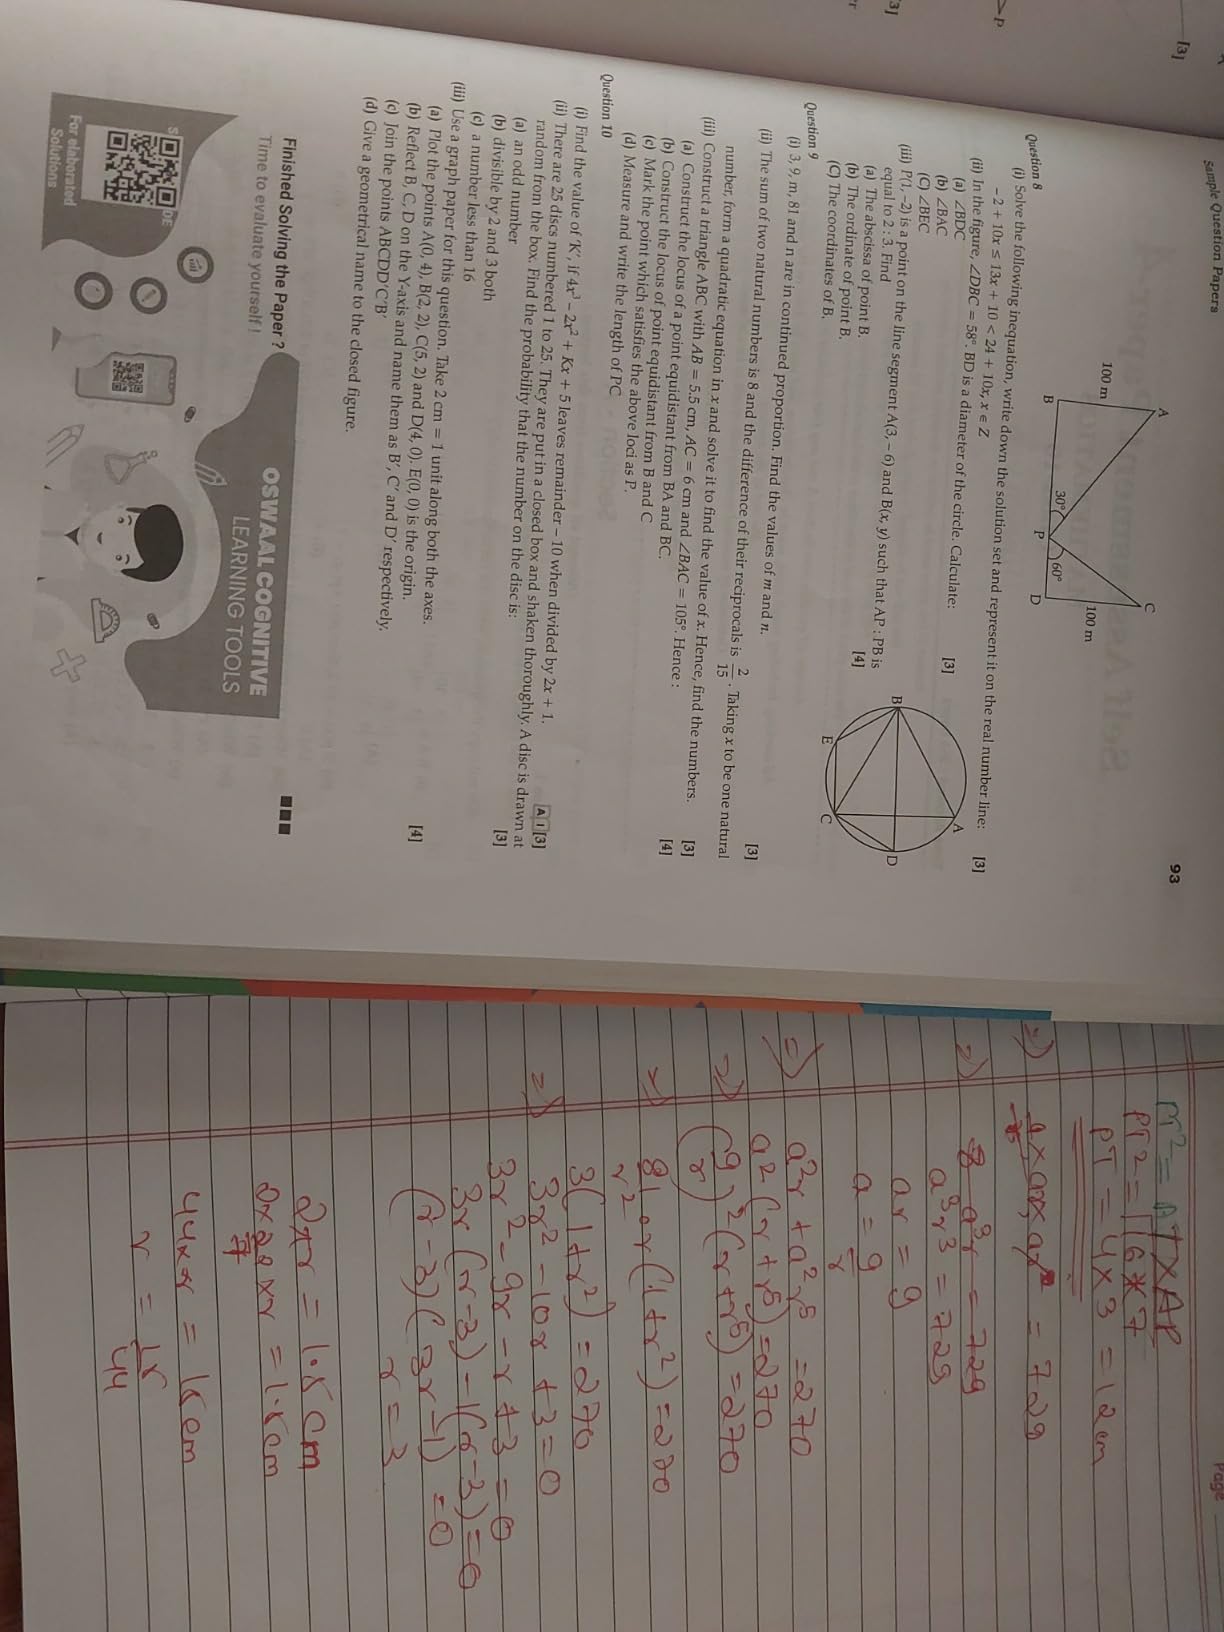 Sample Question Papers
93
[3]
P
[3]
A
C
100 m
100 m
30°
60°
B
P
D
Question 8
(i) Solve the following inequation, write down the solution set and represent it on the real number line:
– 2 + 10x ≤ 13x + 10 < 24 + 10x, x ∈ Z
[3]
(ii) In the figure, ∠DBC = 58°. BD is a diameter of the circle. Calculate:
(a) ∠BDC
(b) ∠BAC
(C) ∠BEC
[3]
A
B
D
E
C
(iii) P(1, –2) is a point on the line segment A(3, – 6) and B(x, y) such that AP : PB is
equal to 2 : 3. Find
(a) The abscissa of point B.
(b) The ordinate of point B.
(C) The coordinates of B.
[4]
Question 9
(i) 3, 9, m, 81 and n are in continued proportion. Find the values of m and n.
[3]
(ii) The sum of two natural numbers is 8 and the difference of their reciprocals is 2/15. Taking x to be one natural
number, form a quadratic equation in x and solve it to find the value of x. Hence, find the numbers.
[3]
(iii) Construct a triangle ABC with AB = 5.5 cm, AC = 6 cm and ∠BAC = 105°. Hence :
[4]
(a) Construct the locus of a point equidistant from BA and BC.
(b) Construct the locus of point equidistant from B and C
(c) Mark the point which satisfies the above loci as P.
(d) Measure and write the length of PC
Question 10
(i) Find the value of 'K', if 4x³ – 2x² + Kx + 5 leaves remainder – 10 when divided by 2x + 1.
A I [3]
(ii) There are 25 discs numbered 1 to 25. They are put in a closed box and shaken thoroughly. A disc is drawn at
random from the box. Find the probability that the number on the disc is:
[3]
(a) an odd number
(b) divisible by 2 and 3 both
(c) a number less than 16
(iii) Use a graph paper for this question. Take 2 cm = 1 unit along both the axes.
[4]
(a) Plot the points A(0, 4), B(2, 2), C(5, 2) and D(4, 0). E(0, 0) is the origin.
(b) Reflect B, C, D on the Y-axis and name them as B', C' and D' respectively.
(c) Join the points ABCDD'C'B'
(d) Give a geometrical name to the closed figure.
Finished Solving the Paper ?
Time to evaluate yourself !
OSWAAL COGNITIVE
LEARNING TOOLS
For elaborated
Solutions
Page
PT² = 16 × 7
PT = 4 × 3 = 12 cm
= 729
a³r = 729
a³r³ = 729
ar = 9
a = 9/r
a²r + a²r⁵ = 270
=) a² (r + r⁵) = 270
=) (9/r)² (r + r⁵) = 270
=) 81/r² × r (1 + r²) = 270
3(1 + r²) = 270
=) 3r² – 10r + 3 = 0
3r² – 9r – r + 3 = 0
3r (r – 3) – 1(r – 3) = 0
(r – 3) (3r – 1) = 0
r = 3
2πr = 1.5 cm
2 × 22/7 × r = 1.5 cm
44 × r = 15 cm
r = 15/44